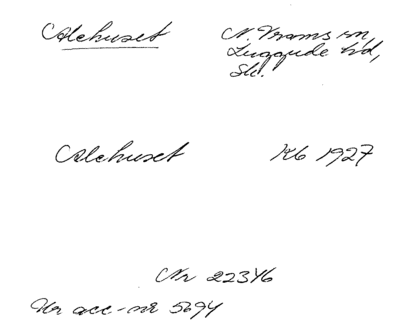 Alehuset N. Vrams sn,
Luggude hd,
Sk.
Alehuset Kb 1927
Nr 22346
Ur acc-nr 5694